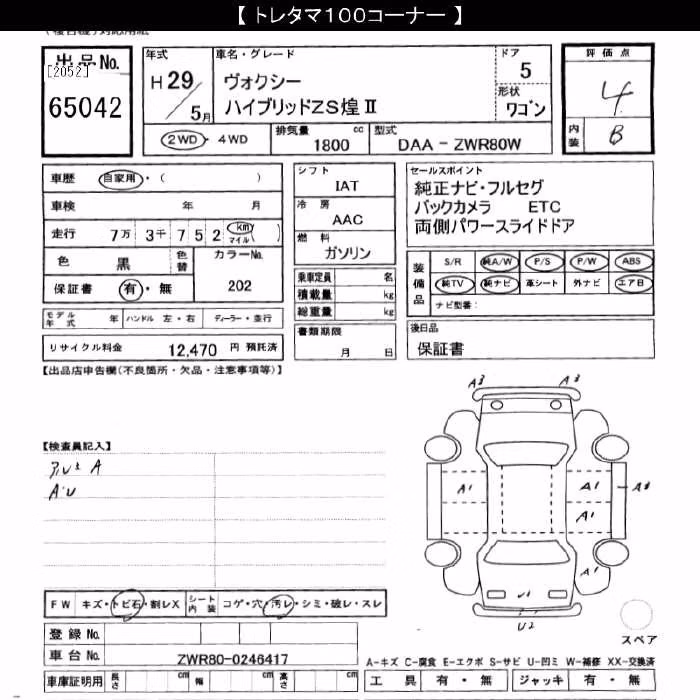 【 トレタマ100コーナー 】
(複合機) 対応用紙
出品No.
[2052]
65042
年式
H 29 / 5 月
車名・グレード
ヴォクシー
ハイブリッドZS煌Ⅱ
ドア
5
形状
ワゴン
評価点
4
内装
B
2WD・4WD
排気量
1800 cc
型式
DAA - ZWR80W
車歴 自家用・( )
車検 年 月
走行 7万 3千 7 5 2 km マイル( )
色 黒
色替
カラーNo.
202
保証書 有・無
シフト
IAT
冷房
AAC
燃料
ガソリン
乗車定員 名
積載量 kg
総重量 kg
書類期限
月 日
セールスポイント
純正ナビ・フルセグ
バックカメラ ETC
両側パワースライドドア
装備品
S/R 純A/W P/S P/W ABS
純TV 純ナビ 革シート 外ナビ エアB
ナビ型番:
後日品
保証書
モデル年式 年 ハンドル 左・右 ディーラー・並行
リサイクル料金 12,470 円 預託済
【出品店申告欄(不良箇所・欠品・注意事項等)】
【検査員記入】
アルミ A
A・U
A3 A3
A1 A1 A3
A1
A1
U1
U2
スペア
FW キズ・トビ石・割レX
シート内装 コゲ・穴・汚レ・シミ・破レ・スレ
登録 No.
車台 No. ZWR80-0246417
車庫証明用 長さ cm 幅 cm 高さ cm
A-キズ C-腐食 E-エクボ S-サビ U-凹ミ W-補修 XX-交換済
工具 有・無 ジャッキ 有・無